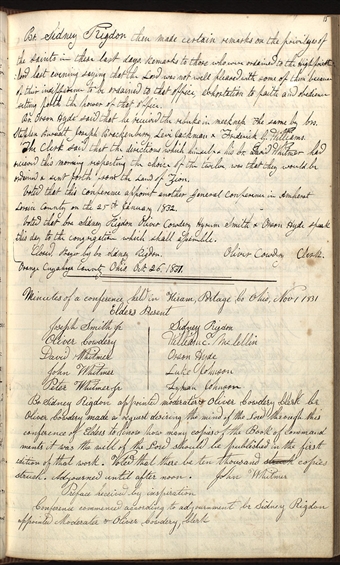 15
Br. Sidney Rigdon then made certain remarks on the privileges of
the saints in these last days remarks to those who were ordained to the high priest
hood last evening saying that the Lord was not well pleased with some of them because
of their indifference to be ordained to that office, exhortation to faith and obedience
setting forth the power of that office.
Br. Orson Hyde said that he received the remarks in meekness. The same by brs.
Joseph Brackenbury, Levi Jackman & Frederick G. Williams.
The Clerk said that the directions which himself & his br. David Whitmer had
received this morning respecting the choice of the twelve was that they would be
ordained & sent forth from the Land of Zion.
Voted that this conference appoint another general conference in Amherst
Lorain County on the 25th January 1832.
Voted that brs Sidney Rigdon Oliver Cowdery Hyrum Smith & Orson Hyde speak
this day to the congregation which shall assemble.
Closed. Prayer by br. Sidney Rigdon. Oliver Cowdery Clerk.
Orange Cuyahoga County, Ohio Oct 26, 1831.
Minutes of a conference held in Hiram, Portage Co Ohio, Nov 1 1831
Elders Present
Joseph Smith jr Sidney Rigdon
Oliver Cowdery William E. McLellin
David Whitmer Orson Hyde
John Whitmer Luke Johnson
Peter Whitmer jr Lyman Johnson
Br. Sidney Rigdon appointed moderator & Oliver Cowdery Clerk br
Oliver Cowdery made a request desiring the mind of the Lord through this
conference of Elders to know how many copies of the Book of command
ments it was the will of the Lord should be published in the first
edition of that work. Voted that there be ten thousand copies
struck. Adjourned until after noon. John Whitmer
Preface received by inspiration
Conference commenced according to adjournment br Sidney Rigdon
appointed Moderator & Oliver Cowdery, Clerk